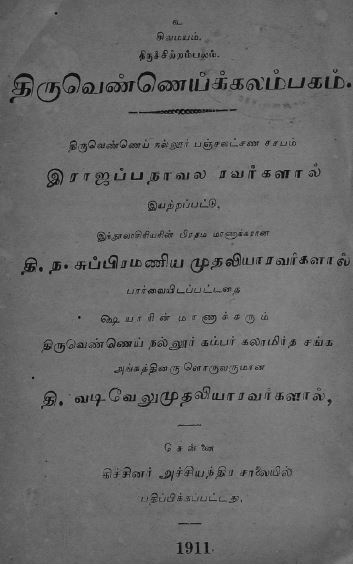 உ
சிவமயம்.
திருச்சிற்றம்பலம்.
திருவெண்ணெய்க்கலம்பகம்.
திருவெண்ணெய் நல்லூர் பஞ்சலட்சண சரபம்
இராஜப்பநாவல ரவர்களால்
இயற்றப்பட்டு,
இந்நூலாசிரியரின் பிரதம மாணாக்கரான
தி. ந. சுப்பிரமணிய முதலியாரவர்களால்
பார்வையிடப்பட்டதை
ஷை யாரின் மாணாக்கரும்
திருவெண்ணெய் நல்லூர் கம்பர் கலாமிர்த சங்க
அங்கத்தினரு ளொருவருமான
தி. வடிவேலுமுதலியாரவர்களால்,
சென்னை
கிச்சினர் அச்சியந்திர சாலையில்
பதிப்பிக்கப்பட்டது.
1911.